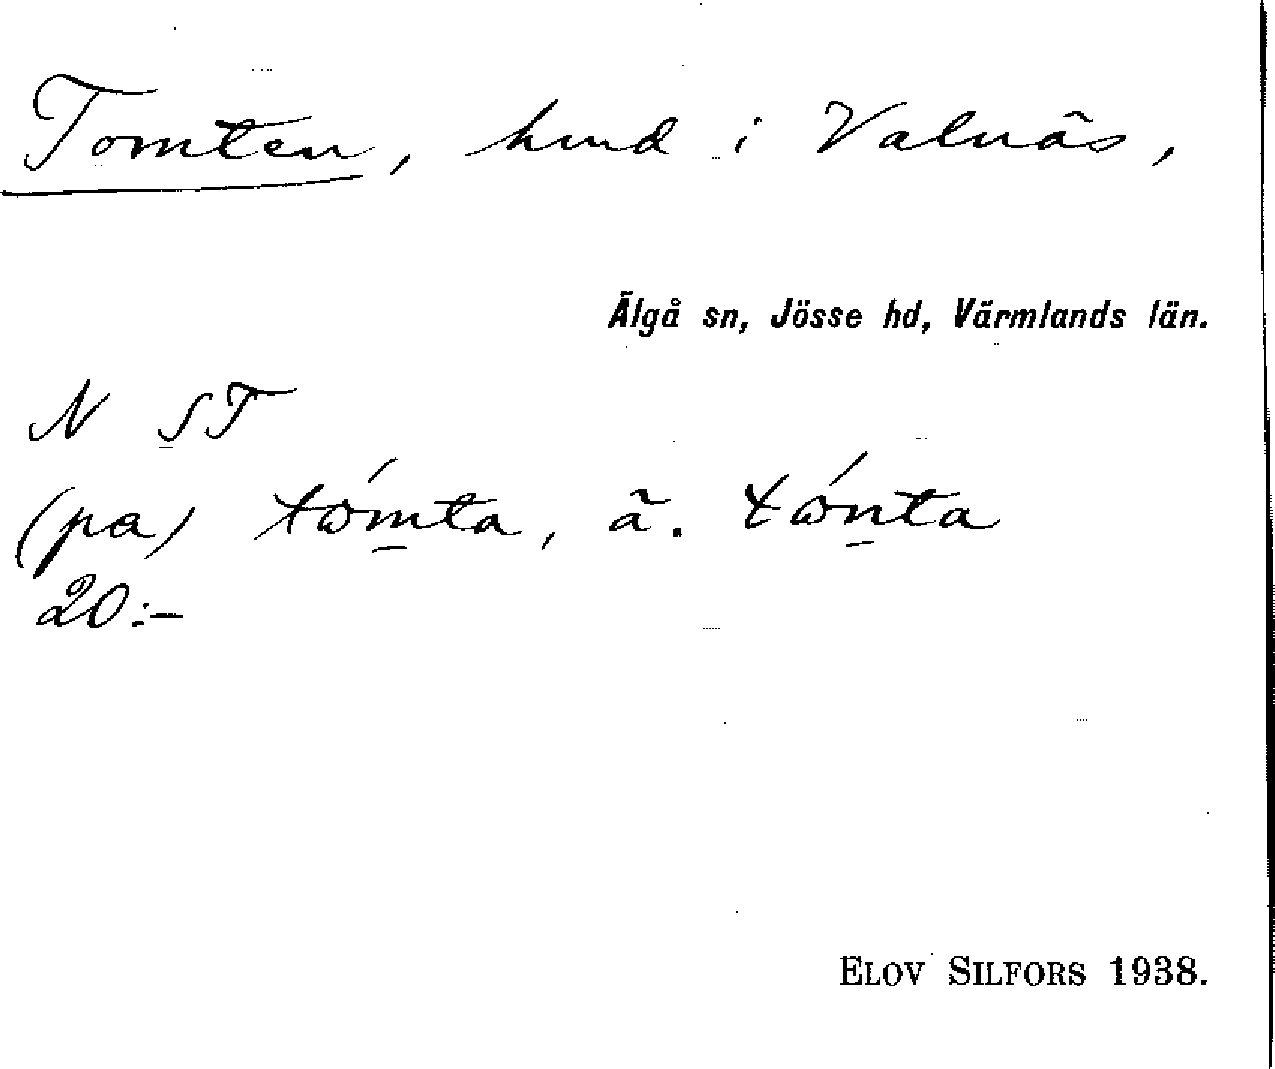 Tomten, hmd i Valnäs,
Älgå sn, Jösse hd, Värmlands län.
N ST
(pa) tǿmta, ä. tǿnta
20:–
ELOV SILFORS 1938.